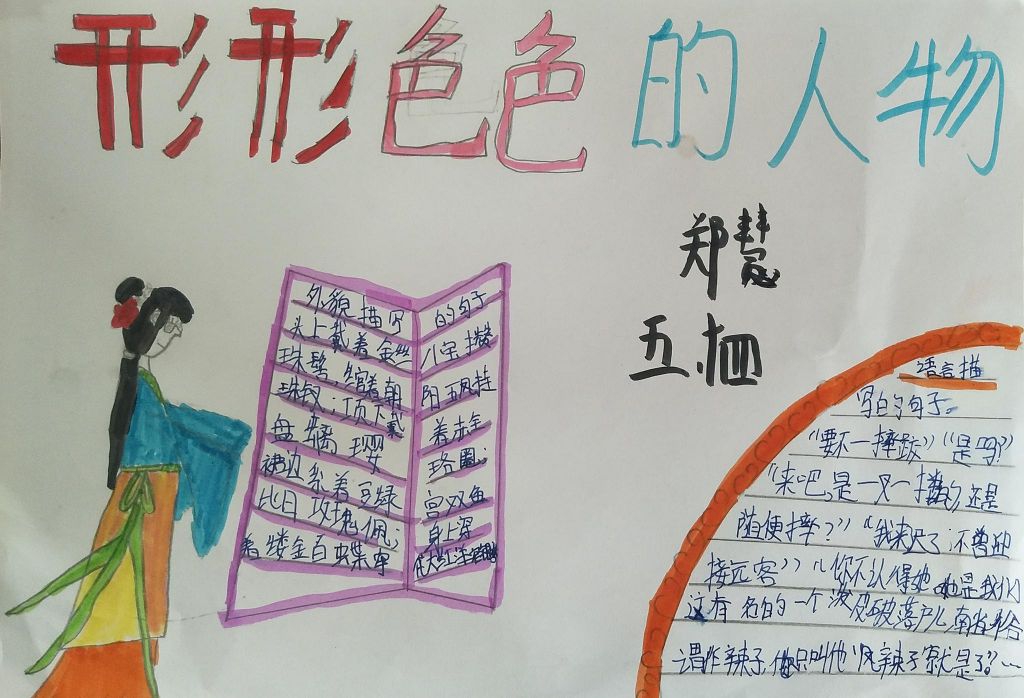 形形色色的人物
郑慧
五.四
外貌描写 的句子
头上戴着金丝 八宝攒
珠髻,绾着朝 阳五凤挂
珠钗;项下戴 着赤金
盘螭璎 珞圈;
裙边系着豆绿 宫双鱼
比目玫瑰佩; 身上穿
着缕金百蝶穿 花大红洋缎
语言描
写的句子。
“要不一摔跤”“是吗?”
“来吧,是一叉一搂的,还是
随便摔?”“我来迟了,不曾迎
接远客”“你不认得她,她是我们
这有名的一个泼皮破落户儿,南省俗
谓作辣子,你只叫他“凤辣子”就是了。”…